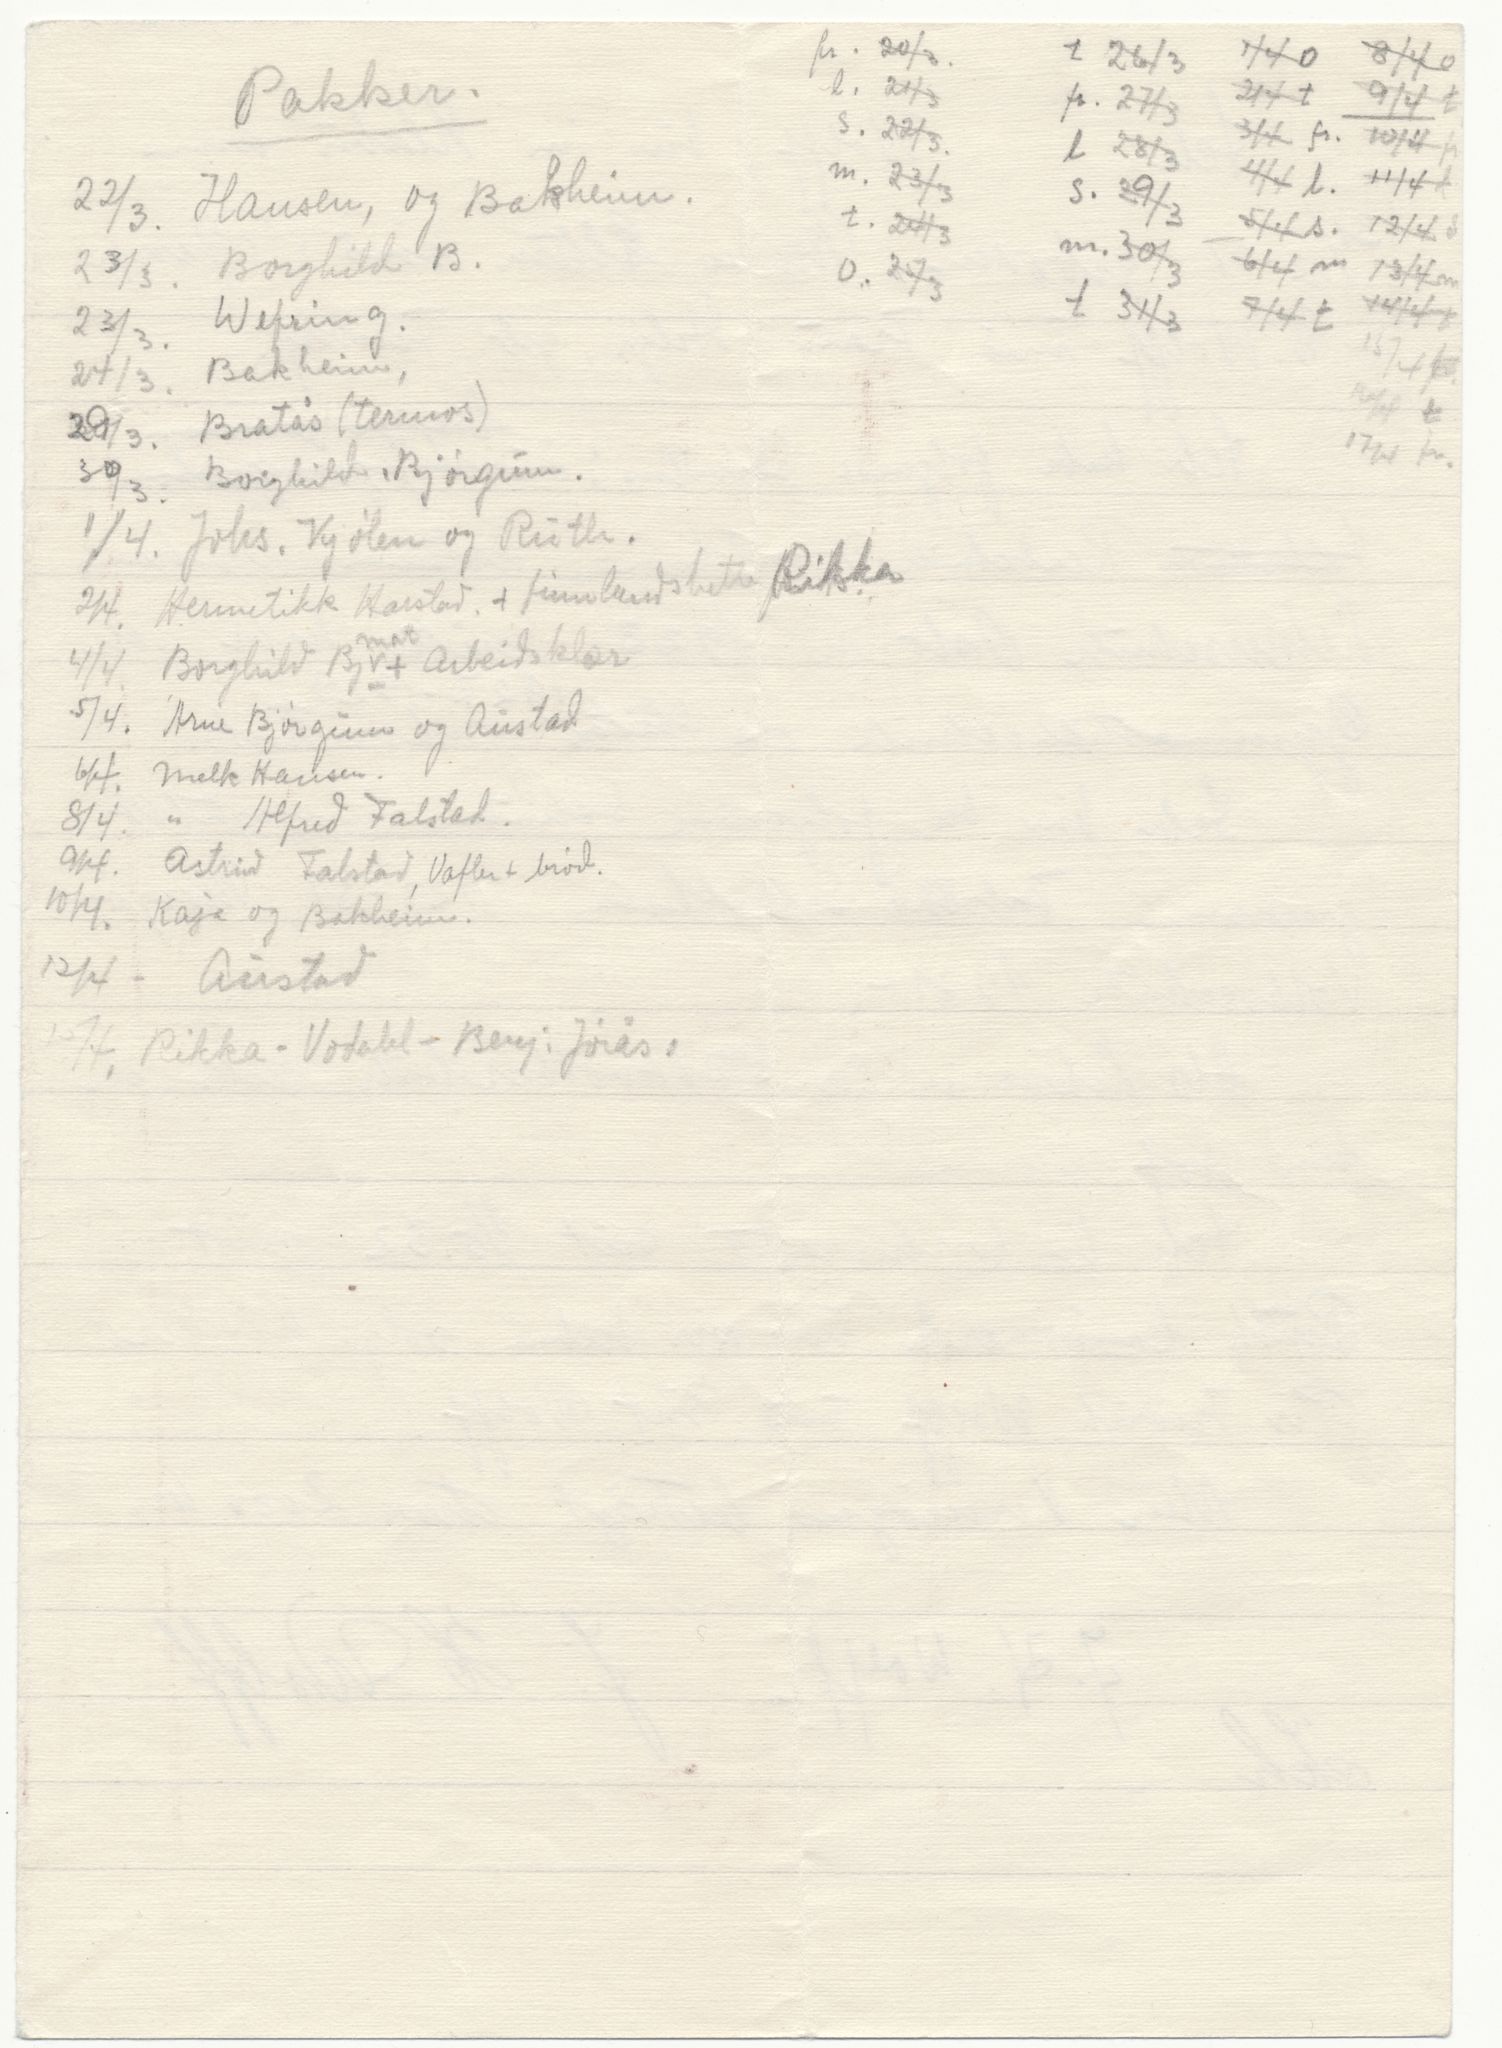 Pakker.
22/3. Hansen, og Bakheim.
23/3. Borghild B.
23/3. Wefring.
24/3. Bakheim,
29/3. Bratås (termos)
30/3. Borghild, Bjørgum.
1/4. Johs. Kjølen og Ruth.
2/4. Hermetikk Harstad. + finnlandshette Rikka
mat
4/4. Borghild Bj + Arbeidsklær
5/4. Arne Bjørgum og Austad
6/4. Melk Hansen.
8/4. " Alfred Falstad.
9/4. Astrid Falstad, Vafler + brød.
10/4. Kaja og Bakheim.
12/4 - Austad
15/4. Rikka - Vodahl - Benj. Jørås.
fr. 20/3.
l. 21/3
s. 22/3.
m. 23/3
t. 24/3
o. 25/3
t 26/3
fr. 27/3
l 28/3
s. 29/3
m. 30/3
t 31/3
1/4 o
2/4 t
3/4 fr.
4/4 l.
5/4 s.
6/4 m
7/4 t
8/4 o
9/4 t
10/4 fr
11/4 l
12/4 s
13/4 m
14/4 t
15/4
16/4 t
17/4 fr.